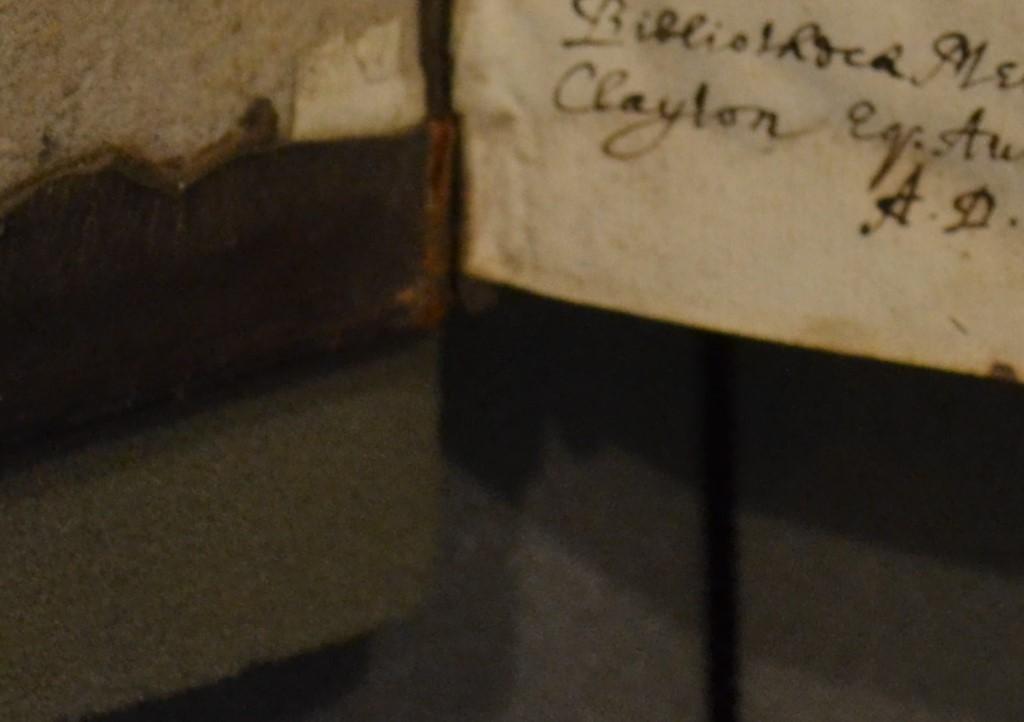 Bibliotheca Me
Clayton Eq. Au
A. D.